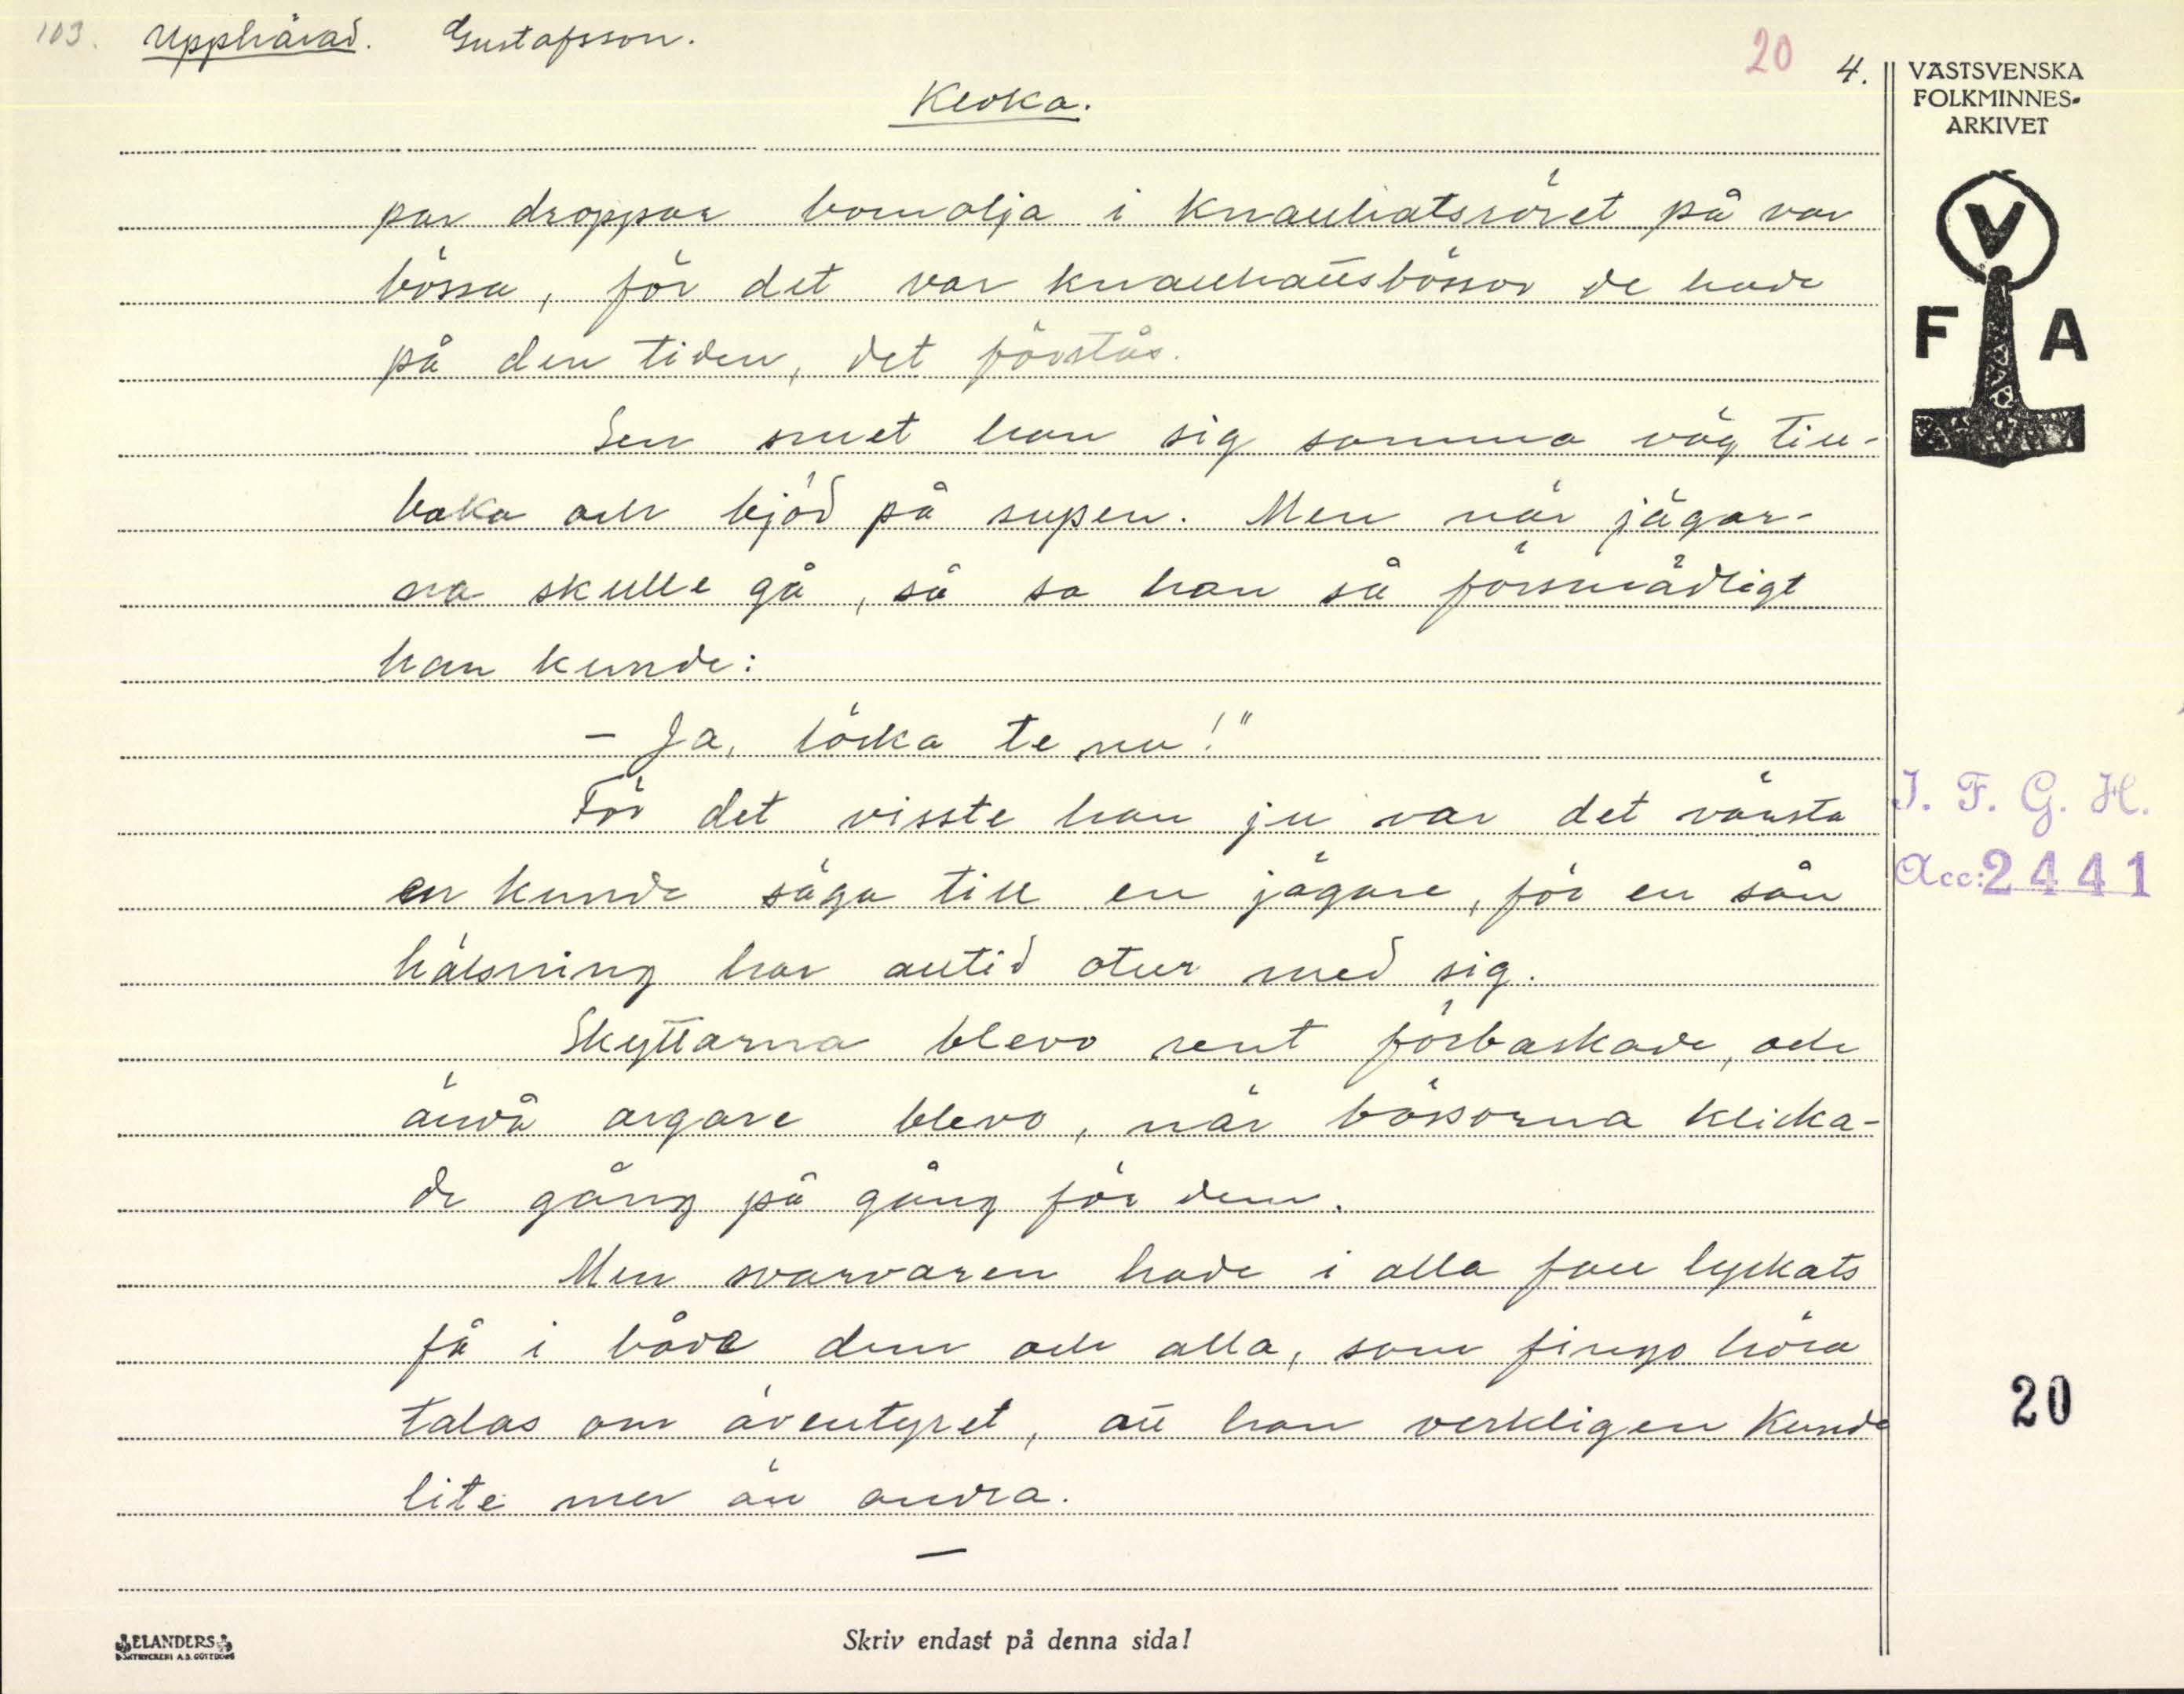 103. Upphärad. Gustafsson. 20 4.
Kloka.
VÄSTSVENSKA
FOLKMINNES-
ARKIVET
V
F A
par droppar bomolja i knallhatsröret på var
bössa, för det var knallhattsbössor de hade
på den tiden, det förstås.
Sen smet han sig samma väg till-
baka och bjöd på supen. Men när jägar-
na skulle gå, så sa han så försmädligt
han kunde:
- Ja, löcka te nu!"
För det visste han ju var det värsta
en kunde säga till en jägare, för en sån
hälsning har alltid otur med sig.
Skyttarna blevo rent förbaskade, och
ändå argare blevo, när bössorna klicka-
de gång på gång för dem.
Men svarvaren hade i alla fall lyckats
få i både dem och alla, som fingo höra
talas om äventyret, att han verkligen kunde
lite mer än andra.
—
I. F. G. H.
Acc: 2441
20
ELANDERS
BOKTRYCKERI A.B. GÖTEBORG
Skriv endast på denna sida!